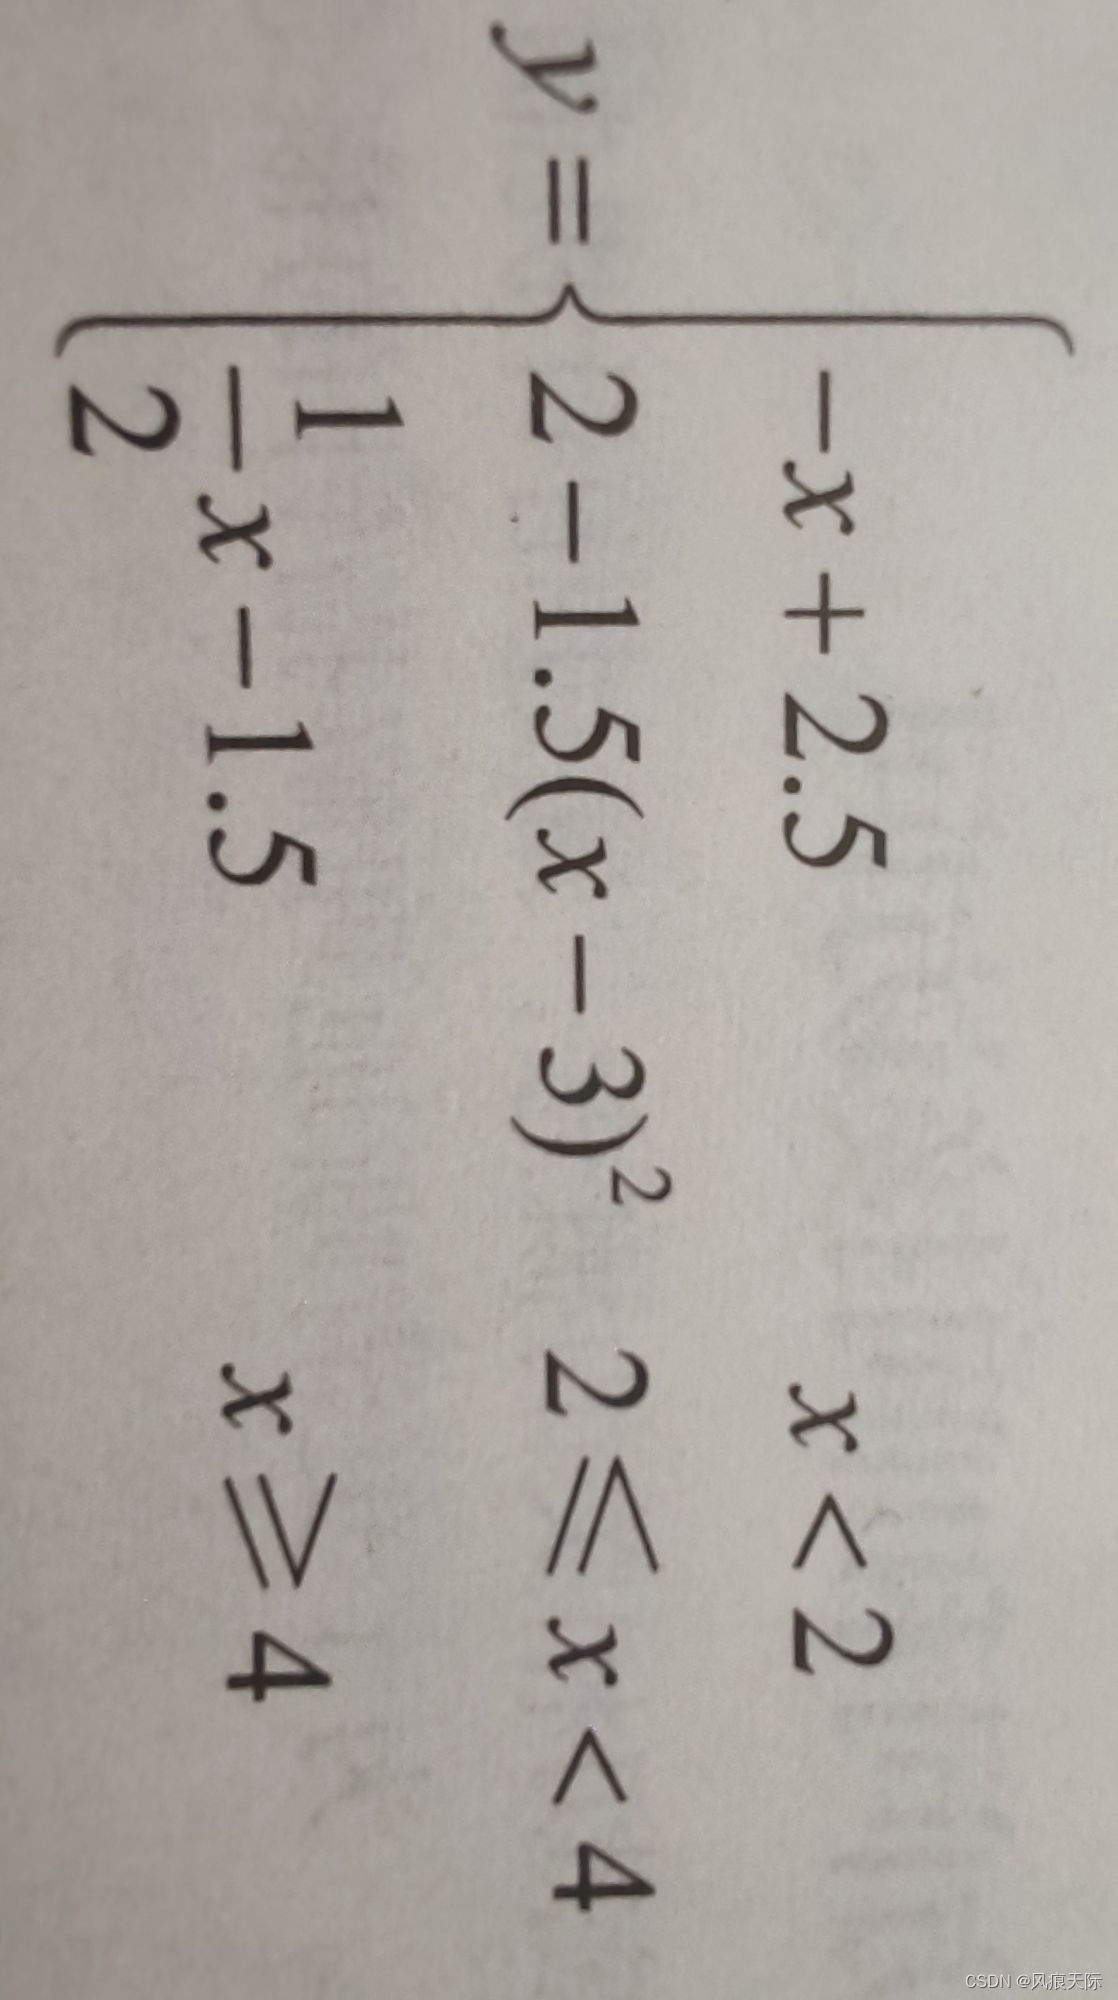 −x + 2.5    x < 2
y = { 2 − 1.5(x − 3)²    2 ⩽ x < 4
1/2 x − 1.5    x ⩾ 4
CSDN @风痕天际